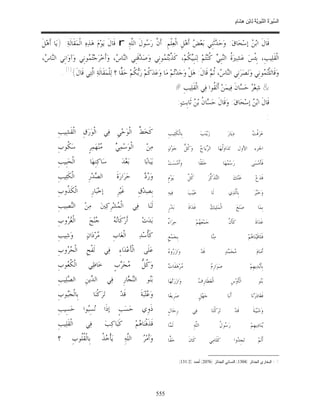 السيرة النبوية لابن هشام
قَالَ ابْنُ إسْحَاقَ: وَحَدَّثَنِي بَعْضُ أَهْلِ الْعِلْمِ: أَنَّ رَسُولَ اللَّهِ ﷺ قَالَ يَوْمَ هَذِهِ الْمَقَالَةِ: (يَا أَهْلَ
الْقَلِيبِ، بِئْسَ عَشِيرَةُ النَّبِيِّ كُنْتُمْ لِنَبِيِّكُمْ، كَذَّبْتُمُونِي وَصَدَّقَنِي النَّاسُ، وَأَخْرَجْتُمُونِي وَآوَانِي النَّاسُ،
وَقَاتَلْتُمُونِي وَنَصَرَنِي النَّاسُ، ثُمَّ قَالَ: هَلْ وَجَدْتُمْ مَا وَعَدَكُمْ رَبُّكُمْ حَقًّا؟ لِلْمَقَالَةِ الَّتِي قَالَ)
شِعْرُ حَسَّانَ فِيمَنْ أُلْقُوا فِي الْقَلِيبِ
قَالَ ابْنُ إسْحَاقَ: وَقَالَ حَسَّانُ بْنُ ثَابِتٍ:
عَرَفْتُ دِيَارَ زَيْنَبَ بِالْكَثِيبِ كَخَطِّ الْوَحْيِ فِي الْوَرَقِ الْقَشِيبِ
تَدَاوَلُهَا الرِّيَاحُ وَكُلُّ جَوْنٍ مِنْ الْوَسْمِيِّ مُنْهَمِرٍ سَكُوبِ
فَأَمْسَى رَسْمُهَا خَلَقًا وَأَمْسَتْ يَبَابًا بَعْدَ سَاكِنِهَا الْحَبِيبِ
فَدَعْ عَنْكَ التَّذَكُّرَ كُلَّ يَوْمٍ وَرُدَّ حَرَارَةَ الصَّدْرِ الْكَئِيبِ
وَخَبِّرْ بِاَلَّذِي لَا عَيْبَ فِيهِ بِصِدْقٍ غَيْرِ إخْبَارِ الْكَذُوبِ
بِمَا صَنَعَ الْمَلِيكُ غَدَاةَ بَدْرٍ لَنَا فِي الْمُشْرِكِينَ مِنْ النَّصِيبِ
غَدَاةَ كَأَنَّ جَمْعَهُمْ حِرَاءٌ بَدَتْ أَرْكَانُهُ جُنْحَ الْغُرُوبِ
فَلَاقَيْنَاهُمْ مِنَّا بِجَمْعٍ كَأُسْدِ الْغَابِ مُرْدَانٍ وَشِيبِ
أَمَامَ مُحَمَّدٍ قَدْ وَازَرُوهُ عَلَى الْأَعْدَاءِ فِي لَفْحِ الْحُرُوبِ
بِأَيْدِيهِمْ صَوَارِمُ مُرْهَفَاتٌ وَكُلُّ مُجَرَّبٍ خَاظِي الْكُعُوبِ
بَنُو الْأَوْسِ الْغَطَارِفُ وَازَرَتْهَا بَنُو النَّجَّارِ فِي الدِّينِ الصَّلِيبِ
فَغَادَرْنَا أَبَا جَهْلٍ صَرِيعًا وَعُتْبَةَ قَدْ تَرَكْنَا بِالْجَبُوبِ
وَشَيْبَةَ قَدْ تَرَكْنَا فِي رِجَالٍ ذَوِي حَسَبٍ إذَا نُسِبُوا حَسِيبِ
يُنَادِيهِمْ رَسُولُ اللَّهِ لَمَّا قَذَفْنَاهُمْ كَبَاكِبَ فِي الْقَلِيبِ
أَلَمْ تَجِدُوا كَلَامِي كَانَ حَقًّا وَأَمْرُ اللَّهِ يَأْخُذُ بِالْقُلُوبِ؟
555